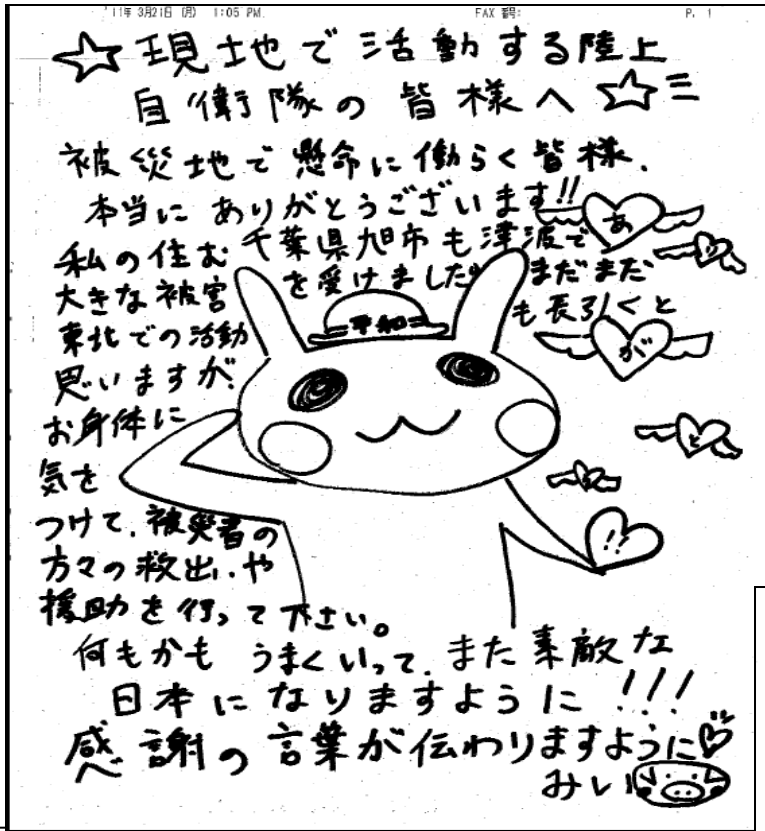 '11年 3月21日 (月) 1:05 PM
FAX 番号:
P. 1
☆現地で活動する陸上
自衛隊の皆様へ☆
被災地で懸命に働らく皆様、
本当にありがとうございます!!
私の住む千葉県旭市も津波で
大きな被害を受けました まだまだ
東北での活動も長引くと
思いますが、
お身体に
気を
つけて、被災者の
方々の救出、や
援助を行って下さい。
何もかもうまくいって、また素敵な
日本になりますように!!!
感謝の言葉が伝わりますように
みい
平和
あ
り
が
と
う
!!